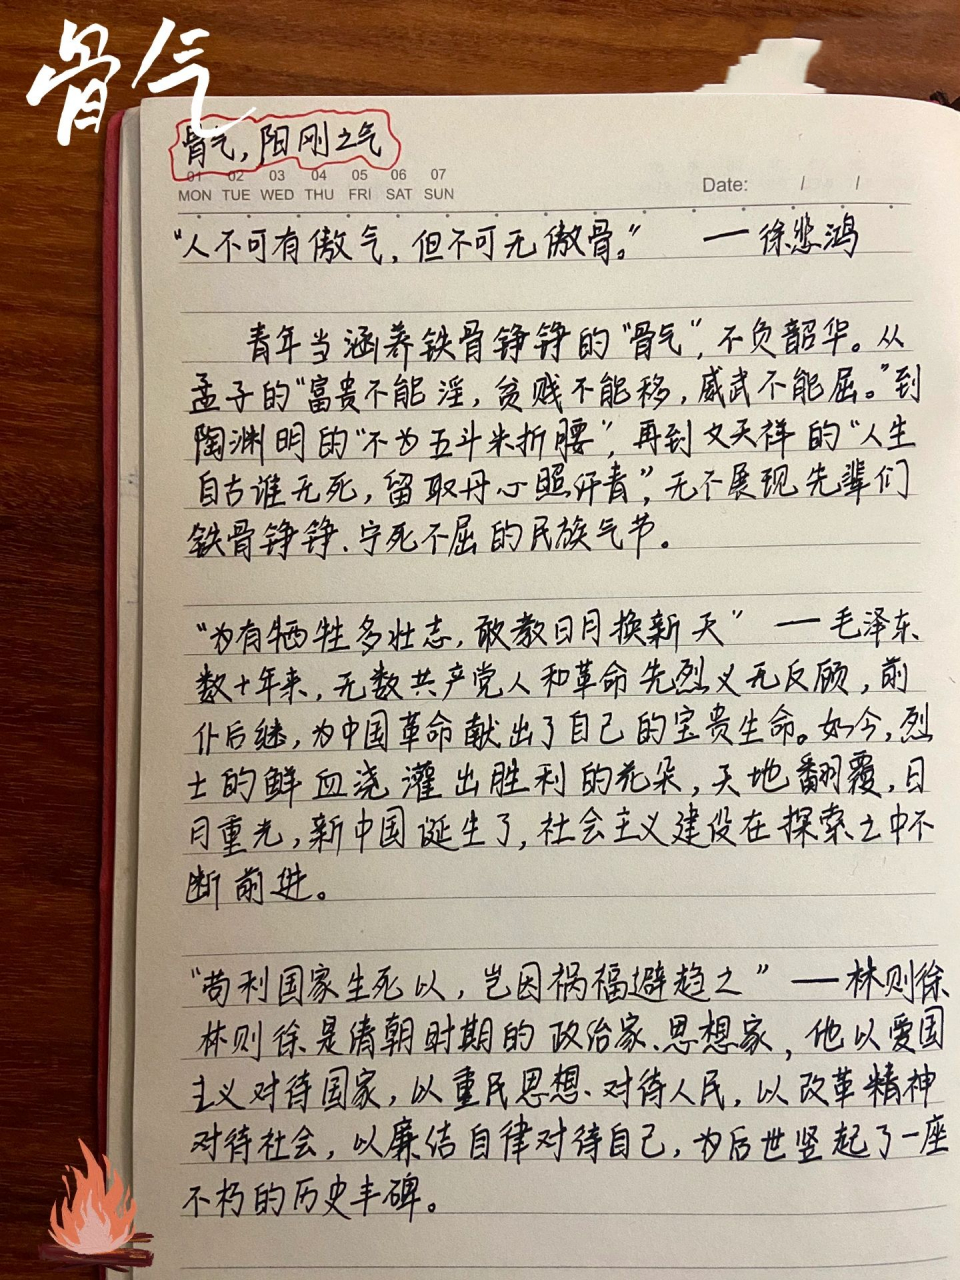 骨气
骨气，阳刚之气
01 02 03 04 05 06 07
MON TUE WED THU FRI SAT SUN
Date: / /
“人不可有傲气，但不可无傲骨。” —徐悲鸿
青年当涵养铁骨铮铮的“骨气”，不负韶华。从
孟子的“富贵不能淫，贫贱不能移，威武不能屈。”到
陶渊明的“不为五斗米折腰”，再到文天祥的“人生
自古谁无死，留取丹心照汗青”，无不展现先辈们
铁骨铮铮、宁死不屈的民族气节。
“为有牺牲多壮志，敢教日月换新天” —毛泽东
数十年来，无数共产党人和革命先烈义无反顾，前
仆后继，为中国革命献出了自己的宝贵生命。如今，烈
士的鲜血浇灌出胜利的花朵，天地翻覆，日
月重光，新中国诞生了，社会主义建设在探索之中不
断前进。
“苟利国家生死以，岂因祸福避趋之” —林则徐
林则徐是清朝时期的政治家、思想家，他以爱国
主义对待国家，以重民思想、对待人民，以改革精神
对待社会，以廉洁自律对待自己，为后世竖起了一座
不朽的历史丰碑。